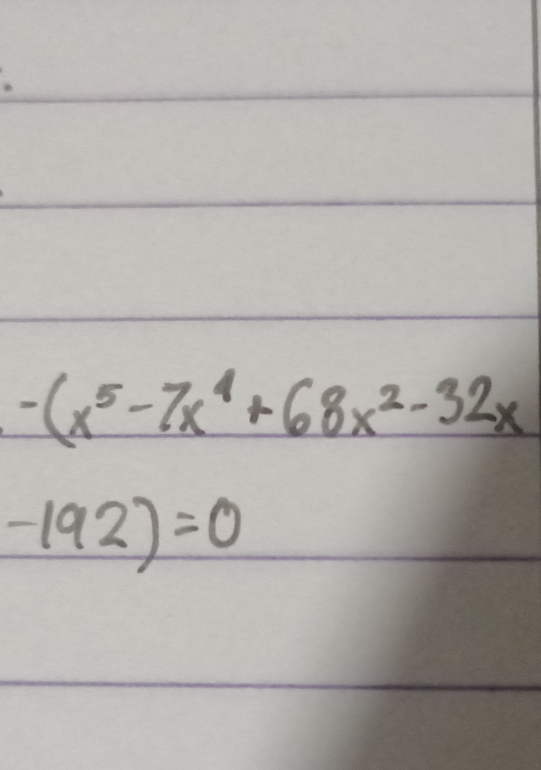 -(x⁵-7x⁴+68x²-32x
-192)=0